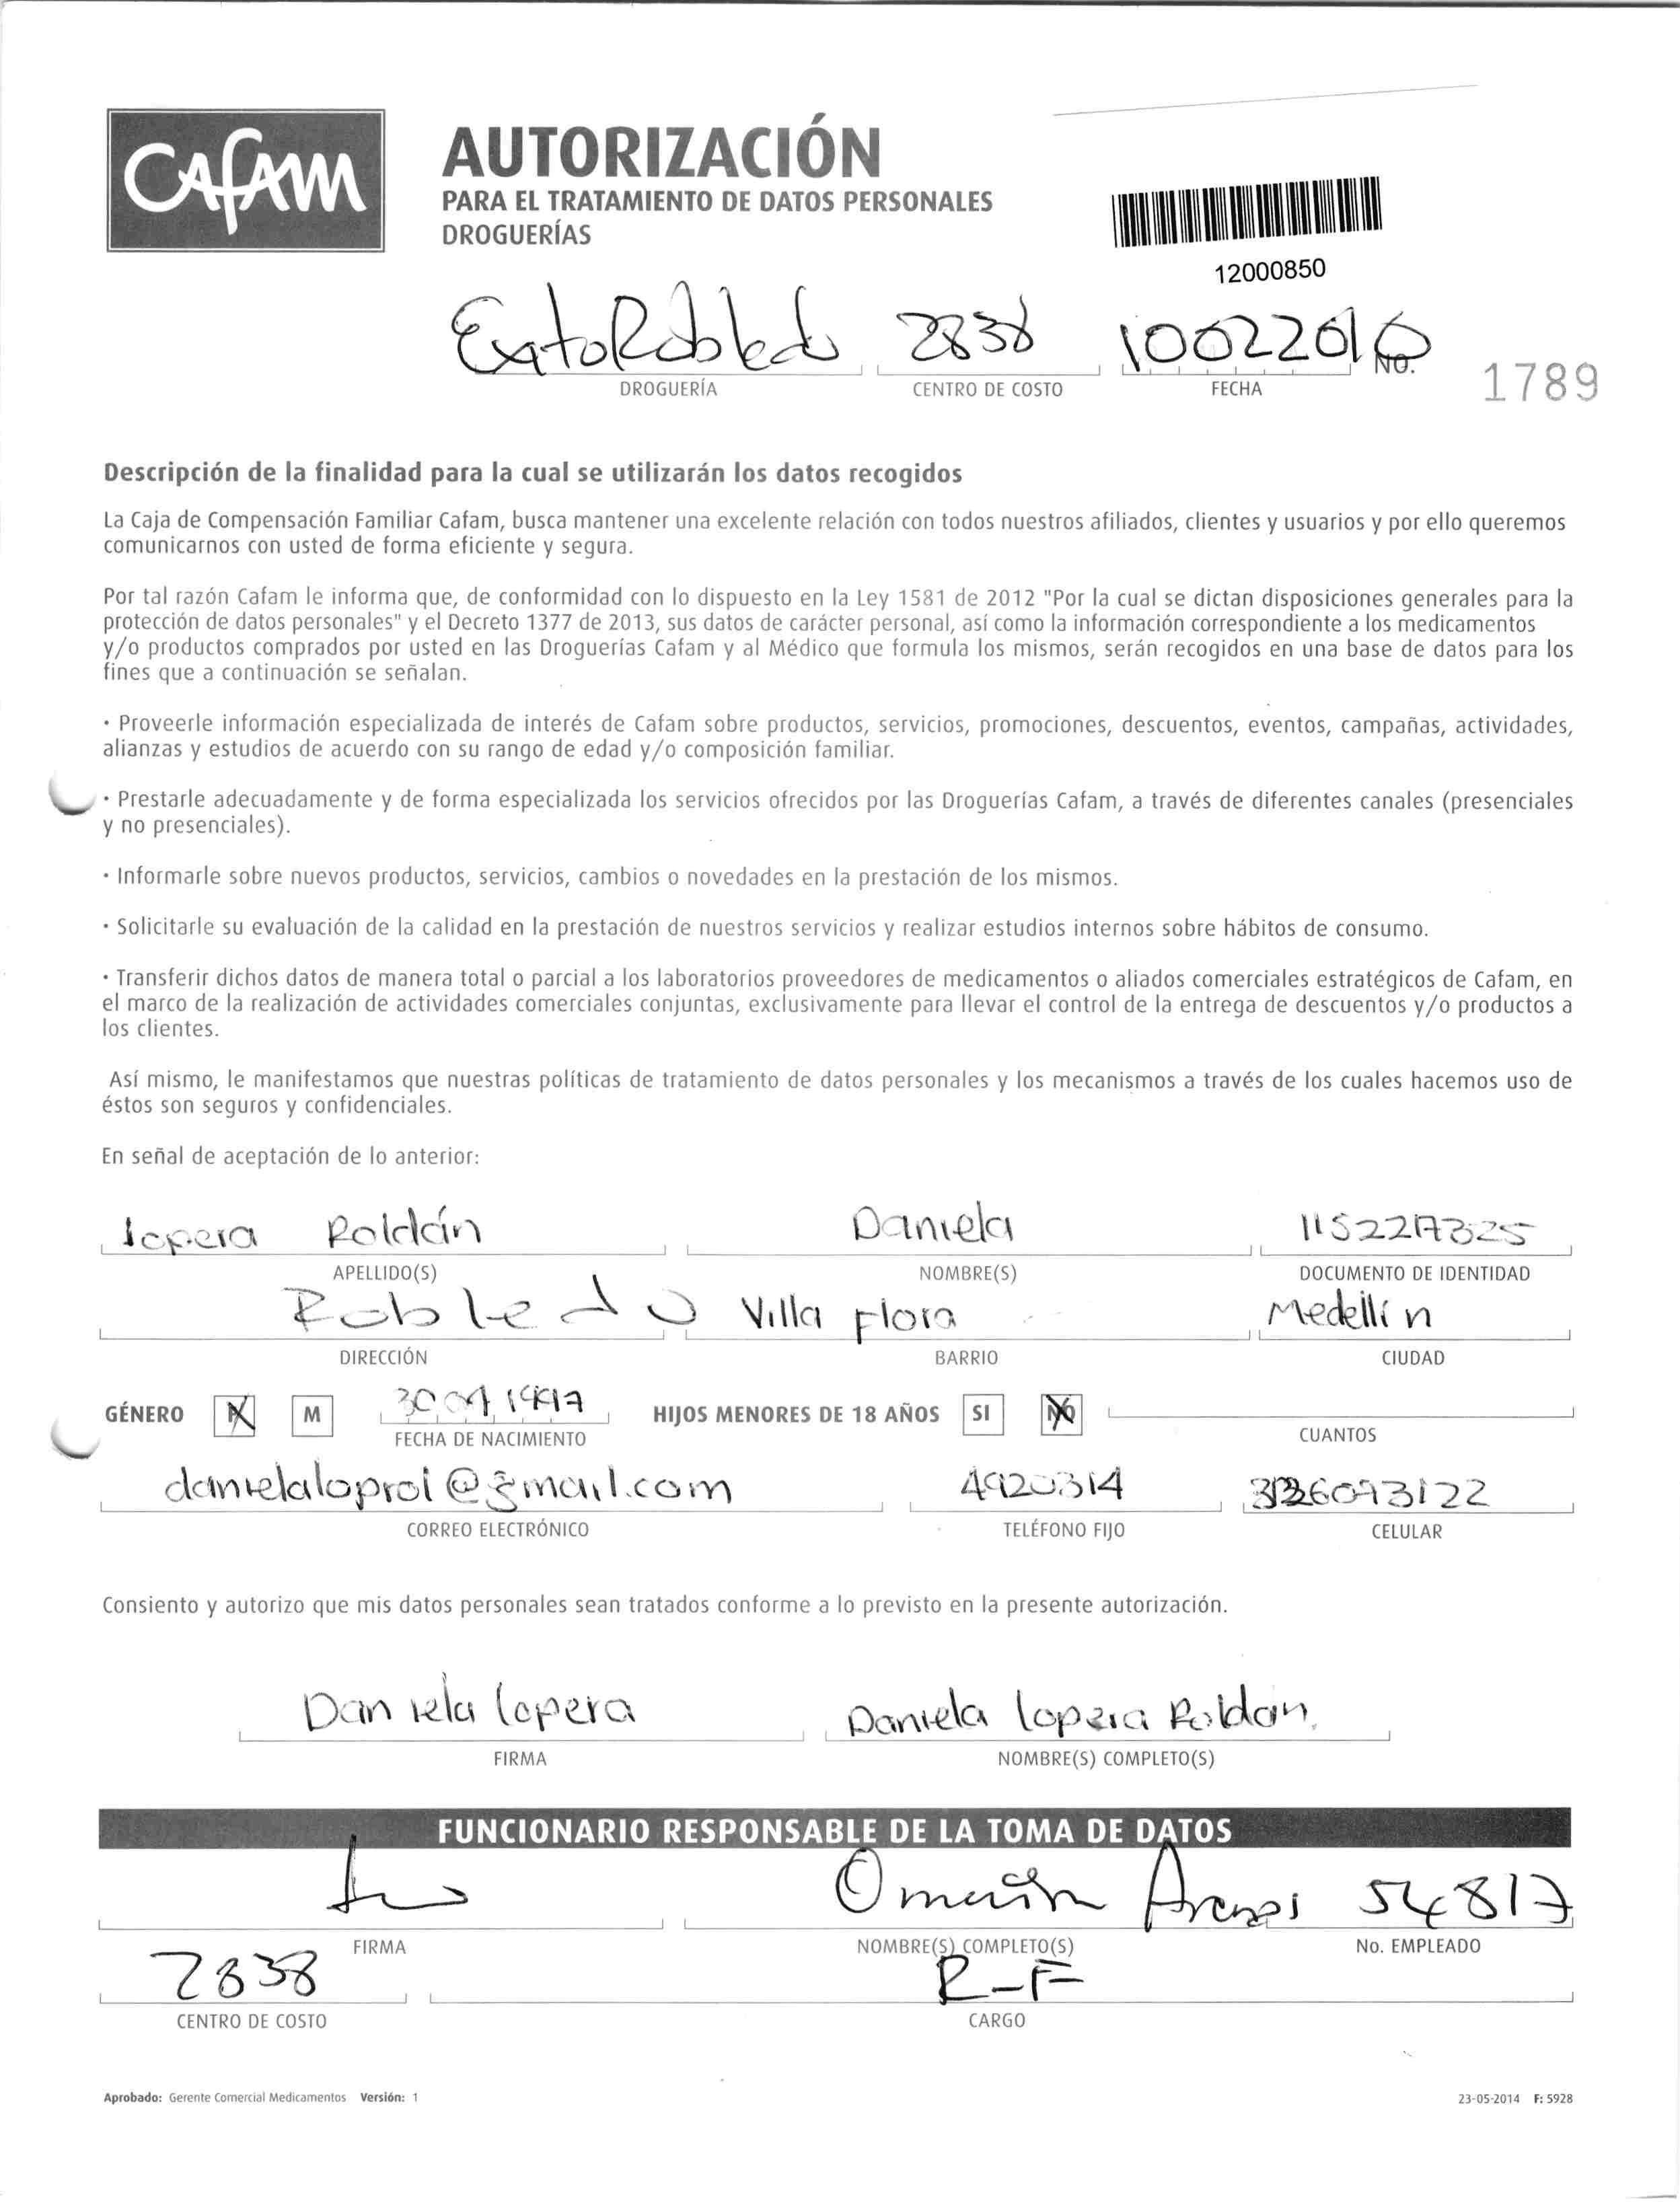 CAFAM
AUTORIZACIÓN
PARA EL TRATAMIENTO DE DATOS PERSONALES
DROGUERÍAS
12000850
Exito Robledo 2838 10022016
DROGUERÍA CENTRO DE COSTO FECHA No. 1789
Descripción de la finalidad para la cual se utilizarán los datos recogidos
La Caja de Compensación Familiar Cafam, busca mantener una excelente relación con todos nuestros afiliados, clientes y usuarios y por ello queremos
comunicarnos con usted de forma eficiente y segura.
Por tal razón Cafam le informa que, de conformidad con lo dispuesto en la Ley 1581 de 2012 "Por la cual se dictan disposiciones generales para la
protección de datos personales" y el Decreto 1377 de 2013, sus datos de carácter personal, así como la información correspondiente a los medicamentos
y/o productos comprados por usted en las Droguerías Cafam y al Médico que formula los mismos, serán recogidos en una base de datos para los
fines que a continuación se señalan.
· Proveerle información especializada de interés de Cafam sobre productos, servicios, promociones, descuentos, eventos, campañas, actividades,
alianzas y estudios de acuerdo con su rango de edad y/o composición familiar.
· Prestarle adecuadamente y de forma especializada los servicios ofrecidos por las Droguerías Cafam, a través de diferentes canales (presenciales
y no presenciales).
· Informarle sobre nuevos productos, servicios, cambios o novedades en la prestación de los mismos.
· Solicitarle su evaluación de la calidad en la prestación de nuestros servicios y realizar estudios internos sobre hábitos de consumo.
· Transferir dichos datos de manera total o parcial a los laboratorios proveedores de medicamentos o aliados comerciales estratégicos de Cafam, en
el marco de la realización de actividades comerciales conjuntas, exclusivamente para llevar el control de la entrega de descuentos y/o productos a
los clientes.
Así mismo, le manifestamos que nuestras políticas de tratamiento de datos personales y los mecanismos a través de los cuales hacemos uso de
éstos son seguros y confidenciales.
En señal de aceptación de lo anterior:
lopera Roldán Daniela
APELLIDO(S) NOMBRE(S) DOCUMENTO DE IDENTIDAD
Robledo Villa Flora Medellín
DIRECCIÓN BARRIO CIUDAD
GÉNERO M HIJOS MENORES DE 18 AÑOS SI NO
FECHA DE NACIMIENTO CUANTOS
danielaloprol@gmail.com 4920314
CORREO ELECTRÓNICO TELÉFONO FIJO CELULAR
Consiento y autorizo que mis datos personales sean tratados conforme a lo previsto en la presente autorización.
Daniela lopera Daniela lopera Roldan.
FIRMA NOMBRE(S) COMPLETO(S)
FUNCIONARIO RESPONSABLE DE LA TOMA DE DATOS
54817
FIRMA NOMBRE(S) COMPLETO(S) No. EMPLEADO
2838 R-F
CENTRO DE COSTO CARGO
Aprobado: Gerente Comercial Medicamentos Versión: 1 23-05-2014 F: 5928